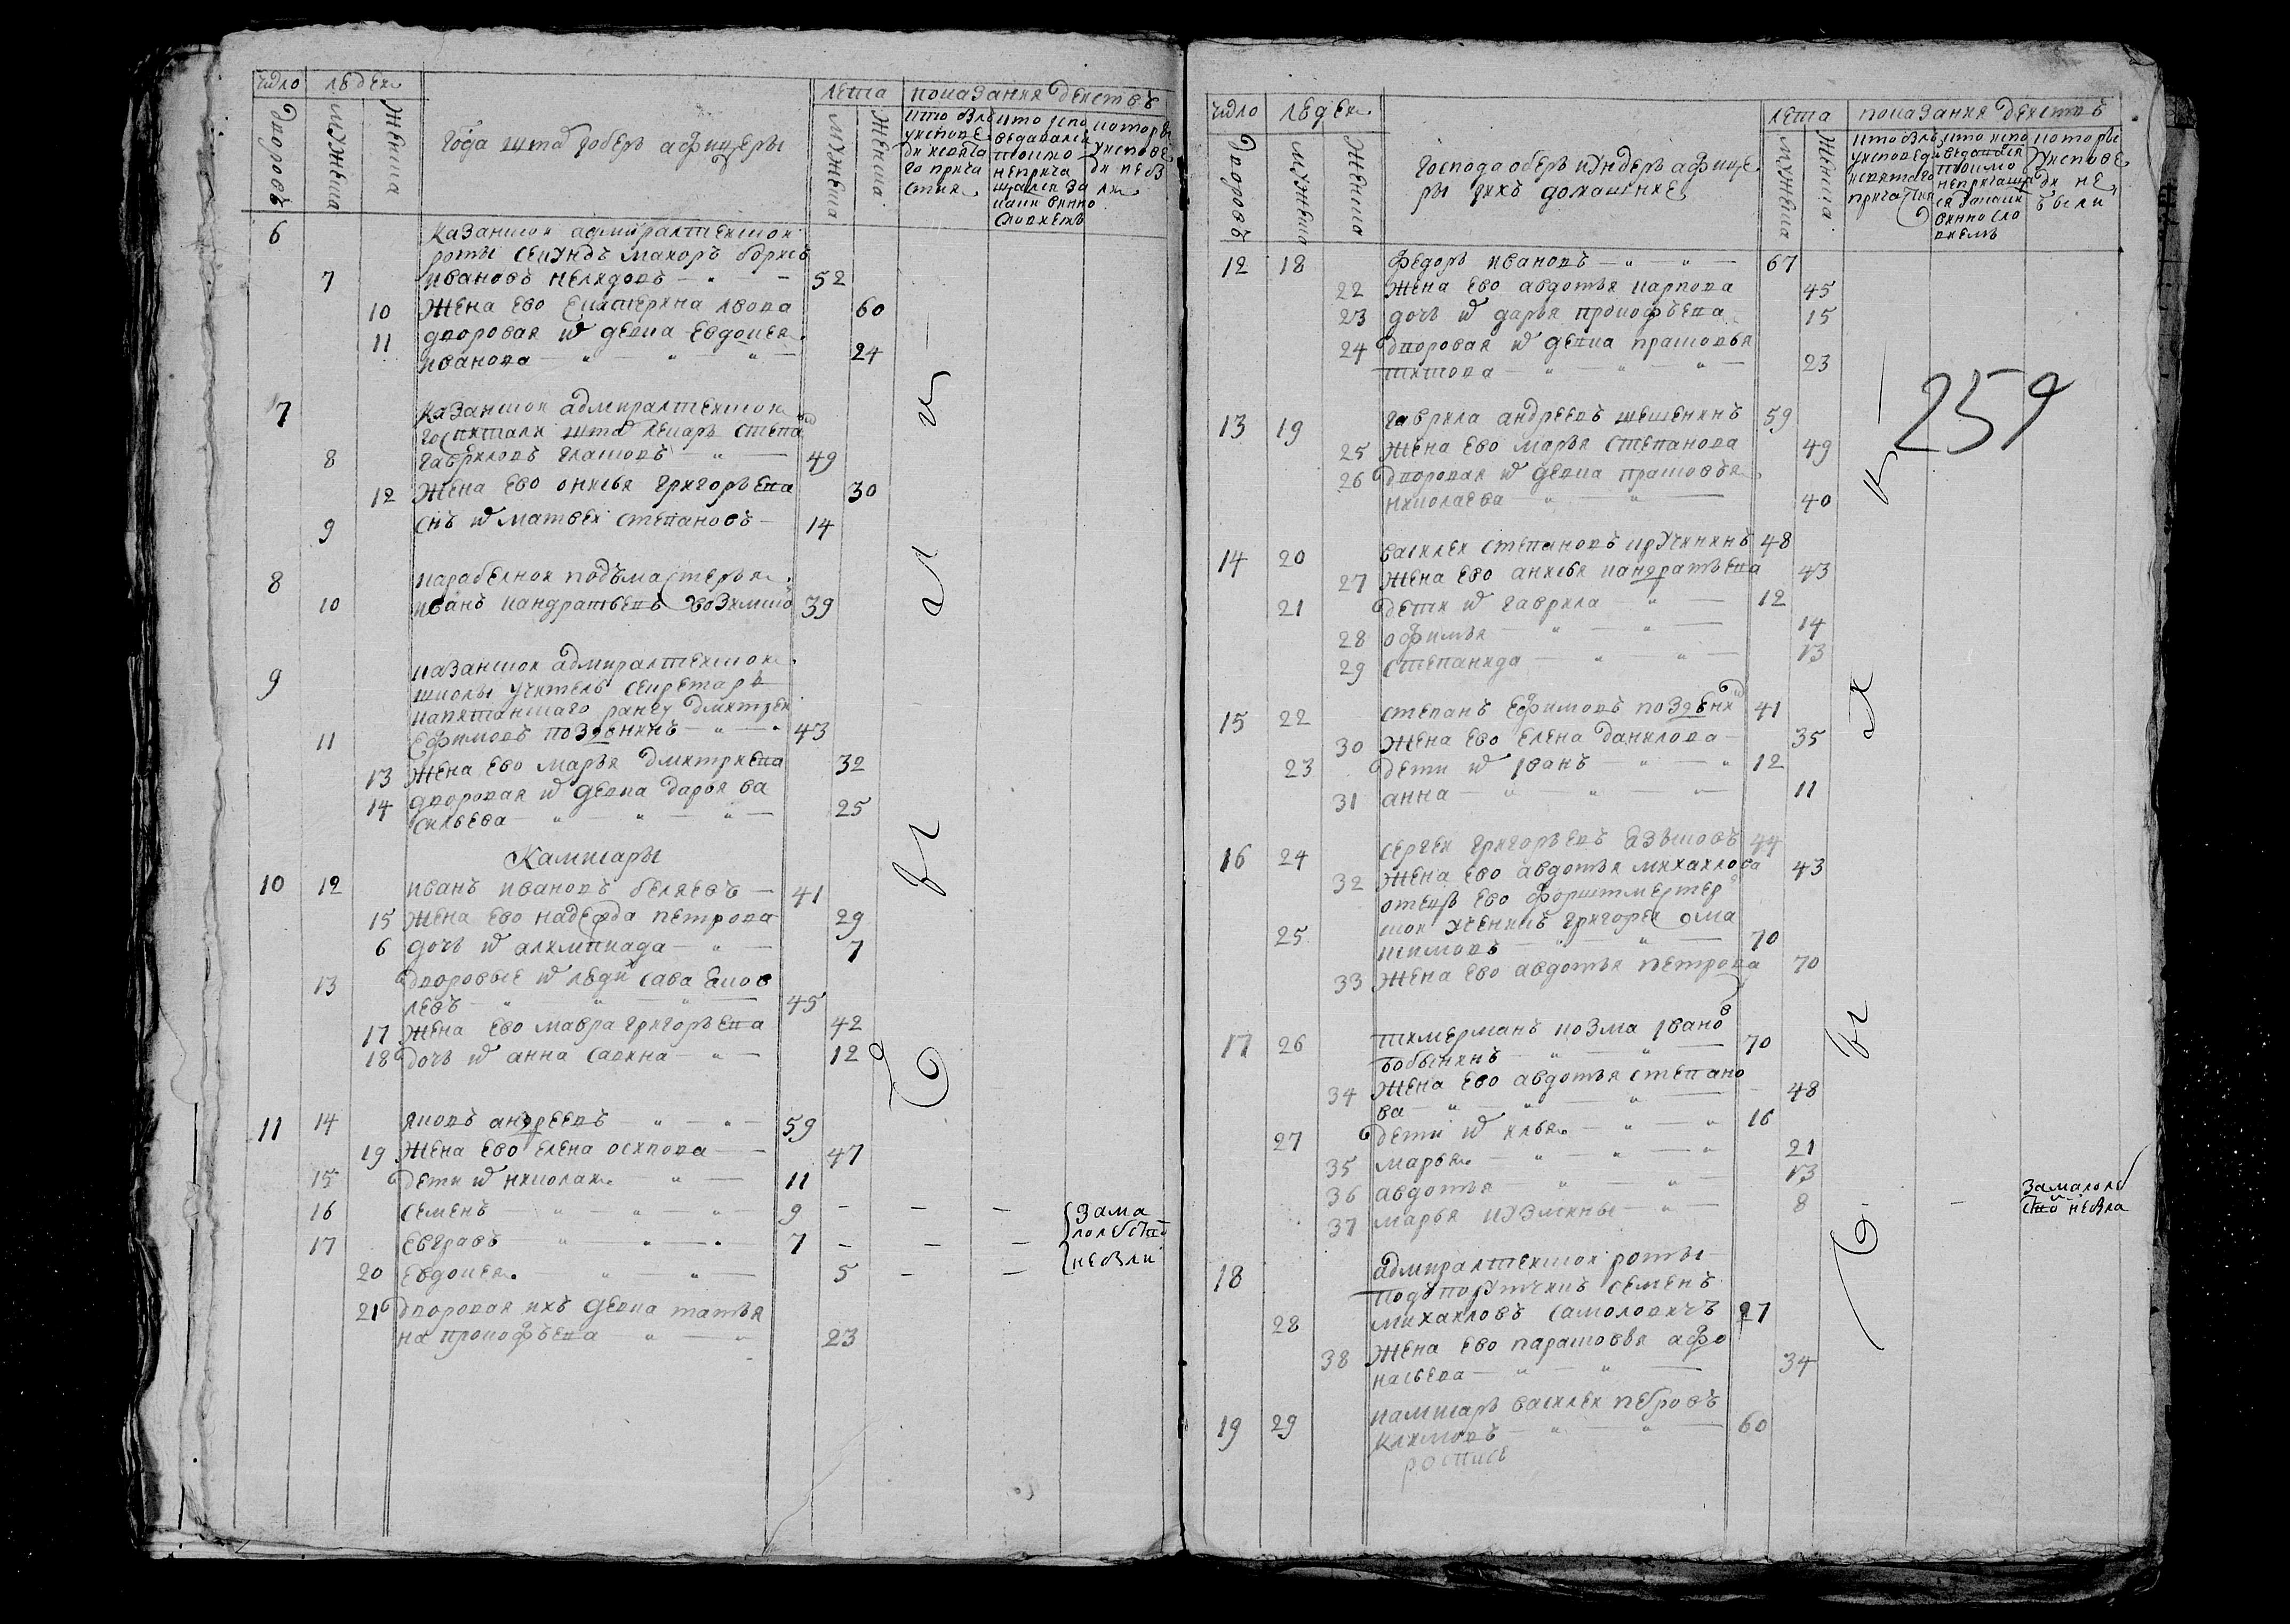 число людеи лета показания деиствъ
дворовъ мужеска женска мужеска женска
Года штаб обер афицеры
кто был у исповеди и святаго причастия
кто испо ведавался токмо не прича щался за каким винно словием
которые у испове ди не бы ли
6 казанскои адмиралтеискои
роты секундъ маиоръ борисъ
7 ивановъ нелидовъ 52
10 жена ево екатерина лвова 60
11 дворовая их девка евдокея
иванова 24
7 казанскои адмиралтеискои
госпитали штаб лекарь степа
8 гавриловъ глашовъ 49
12 жена ево онисья григорьева 30
9 снъ их матвеи степановъ 14
8 карабелнои подъмастерья
10 иванъ кандратьевъ 39
9 казанскои адмиралтеискои
школы учитель секретарь
капитанскаго рангу дмитреи
11 ефимовъ поздѣнинъ 43
13 жена ево марья дмитриева 32
14 дворовая их девка дарья ва
сильева 25
Камисары
10 12 иванъ ивановъ беляевъ 41
15 жена ево надежда петрова 29
6 дочь их алимпиада 7
13 дворовые их люди сава яков
левъ 45
17 жена ево мавра григорьева 42
18 дочь их анна савина 12
11 14 яковъ андреевъ 59
19 жена ево елена осипова 47
15 дети их николаи 11
16 семенъ 9 — — — за ма
лолѣбств
17 евгравъ 7 — — —
не были
20 евдокея 5 — —
21 дворовая ихъ девка татья
на прокофьева 23
число людеи лета показания деиствъ
дворовъ мужеска женска мужеска женска
Господа оберъ иундеръ афице
ры ихъ домашние
кто былъ у исповеди и святаго причастия
кто испо ведался токмо не причаща ся за каким винносло вием
которы у испове ди не были
259
12 18 федоръ ивановъ 67
22 жена ево авдотья карпова 45
23 дочь их дарья прокофьева 15
24 дворовая их девка прасковья
титова 23
13 19 гаврила андреевъ шешенинъ 59
25 жена ево марья степанова 49
26 дворовая их девка прасковья
николаева 40
14 20 василеи степановъ кручининъ 48
27 жена ево анисья кандратьева 43
21 дети их гаврила 12
28 офимья 14
29 степанида 13
15 22 степанъ ефимовъ поздѣни 41
30 жена ево елена данилова 35
23 дети их иванъ 12
31 анна 11
16 24 сергеи григорьевъ языковъ 44
32 жена ево авдотья михаилова 43
отецъ ево форштмеистер
25 скои ученикъ григореи
70
33 жена ево авдотья петрова 70
17 26 тимерманъ козма ивано
бобынинъ 70
34 жена ево авдотья степано
ва 48
27 дети их илья 16
35 марья 21
36 авдотья 13
37 марья кузмины 8 — за малолѣ
ств не была
18 адмиралтеискои роты
подъпорутчикъ семенъ
28 михаиловъ самоловичъ 27
38 жена ево парасковья афо
насьева 34
19 29 камисаръ василеи петровъ
климовъ 60
роспись